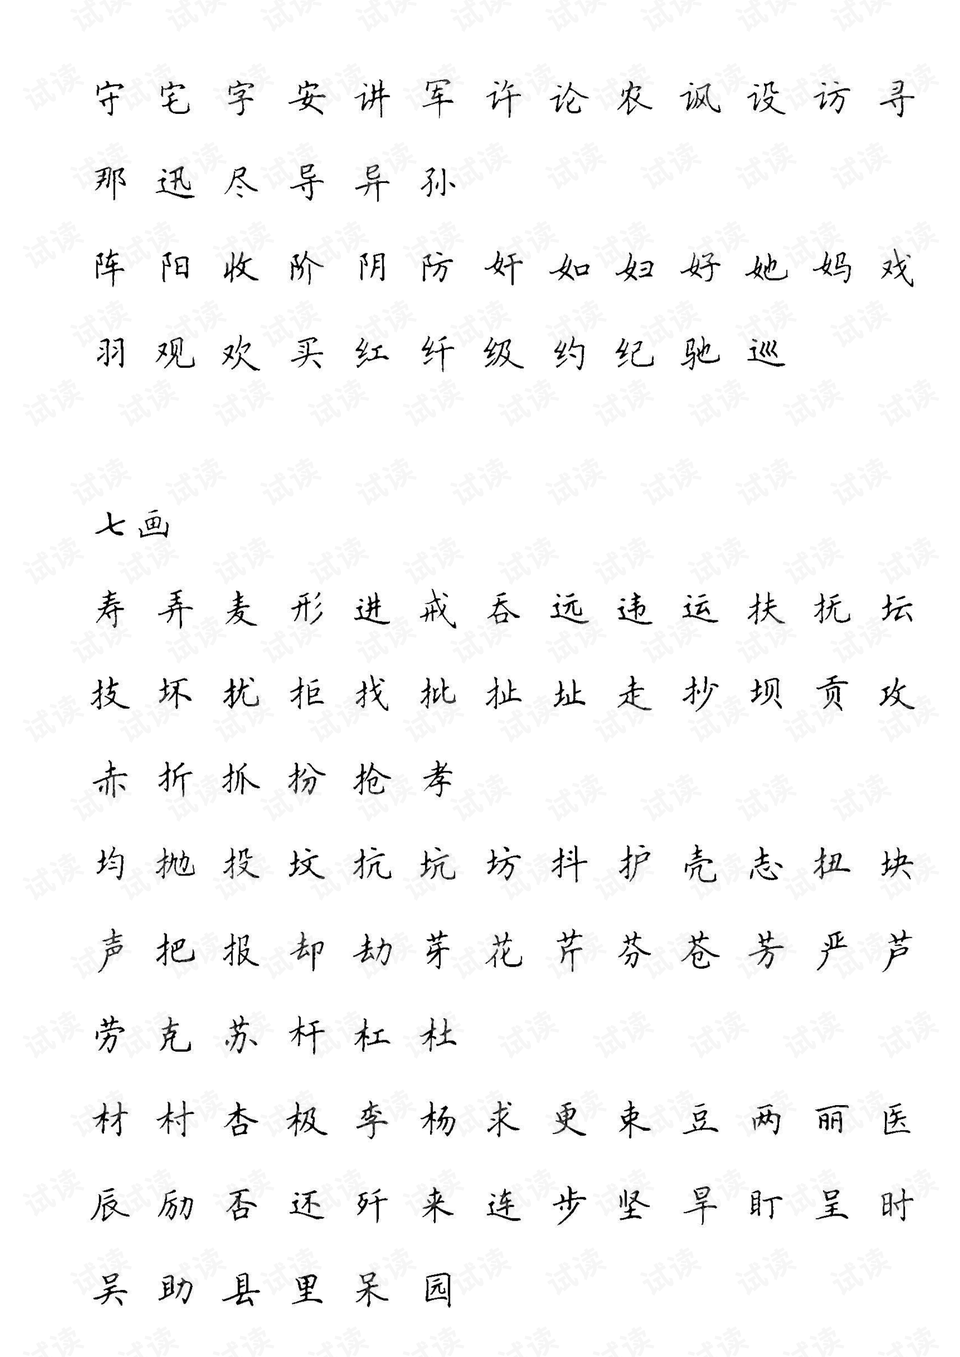 守 宅 字 安 讲 军 许 论 农 讽 设 访 寻
那 迅 尽 导 异 孙
阵 阳 收 阶 阴 防 奸 如 妇 好 她 妈 戏
羽 观 欢 买 红 纤 级 约 纪 驰 巡
七画
寿 弄 麦 形 进 戒 吞 远 违 运 扶 抚 坛
技 坏 扰 拒 找 批 扯 址 走 抄 坝 贡 攻
赤 折 抓 扮 抢 孝
均 抛 投 坟 抗 坑 坊 抖 护 壳 志 扭 块
声 把 报 却 劫 芽 花 芹 芬 苍 芳 严 芦
劳 克 苏 杆 杠 杜
材 村 杏 极 李 杨 求 更 束 豆 两 丽 医
辰 励 否 还 歼 来 连 步 坚 旱 盯 呈 时
吴 助 县 里 呆 园